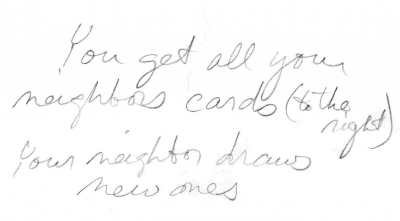 You get all your
neighbors cards (to the
right)
Your neighbor draws
new ones